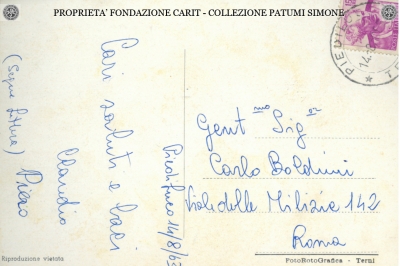 PROPRIETA' FONDAZIONE CARIT - COLLEZIONE PATUMI SIMONE
Piediluco 14/8/63
Cari saluti e baci
Claudio
Piero
(Segue lettera)
Gent.mo Sig.or
Carlo Boldrini
Viale delle Milizie 142
Roma
PIEDIL
14.8
TE
Riproduzione vietata
FotoRotoGrafica - Terni